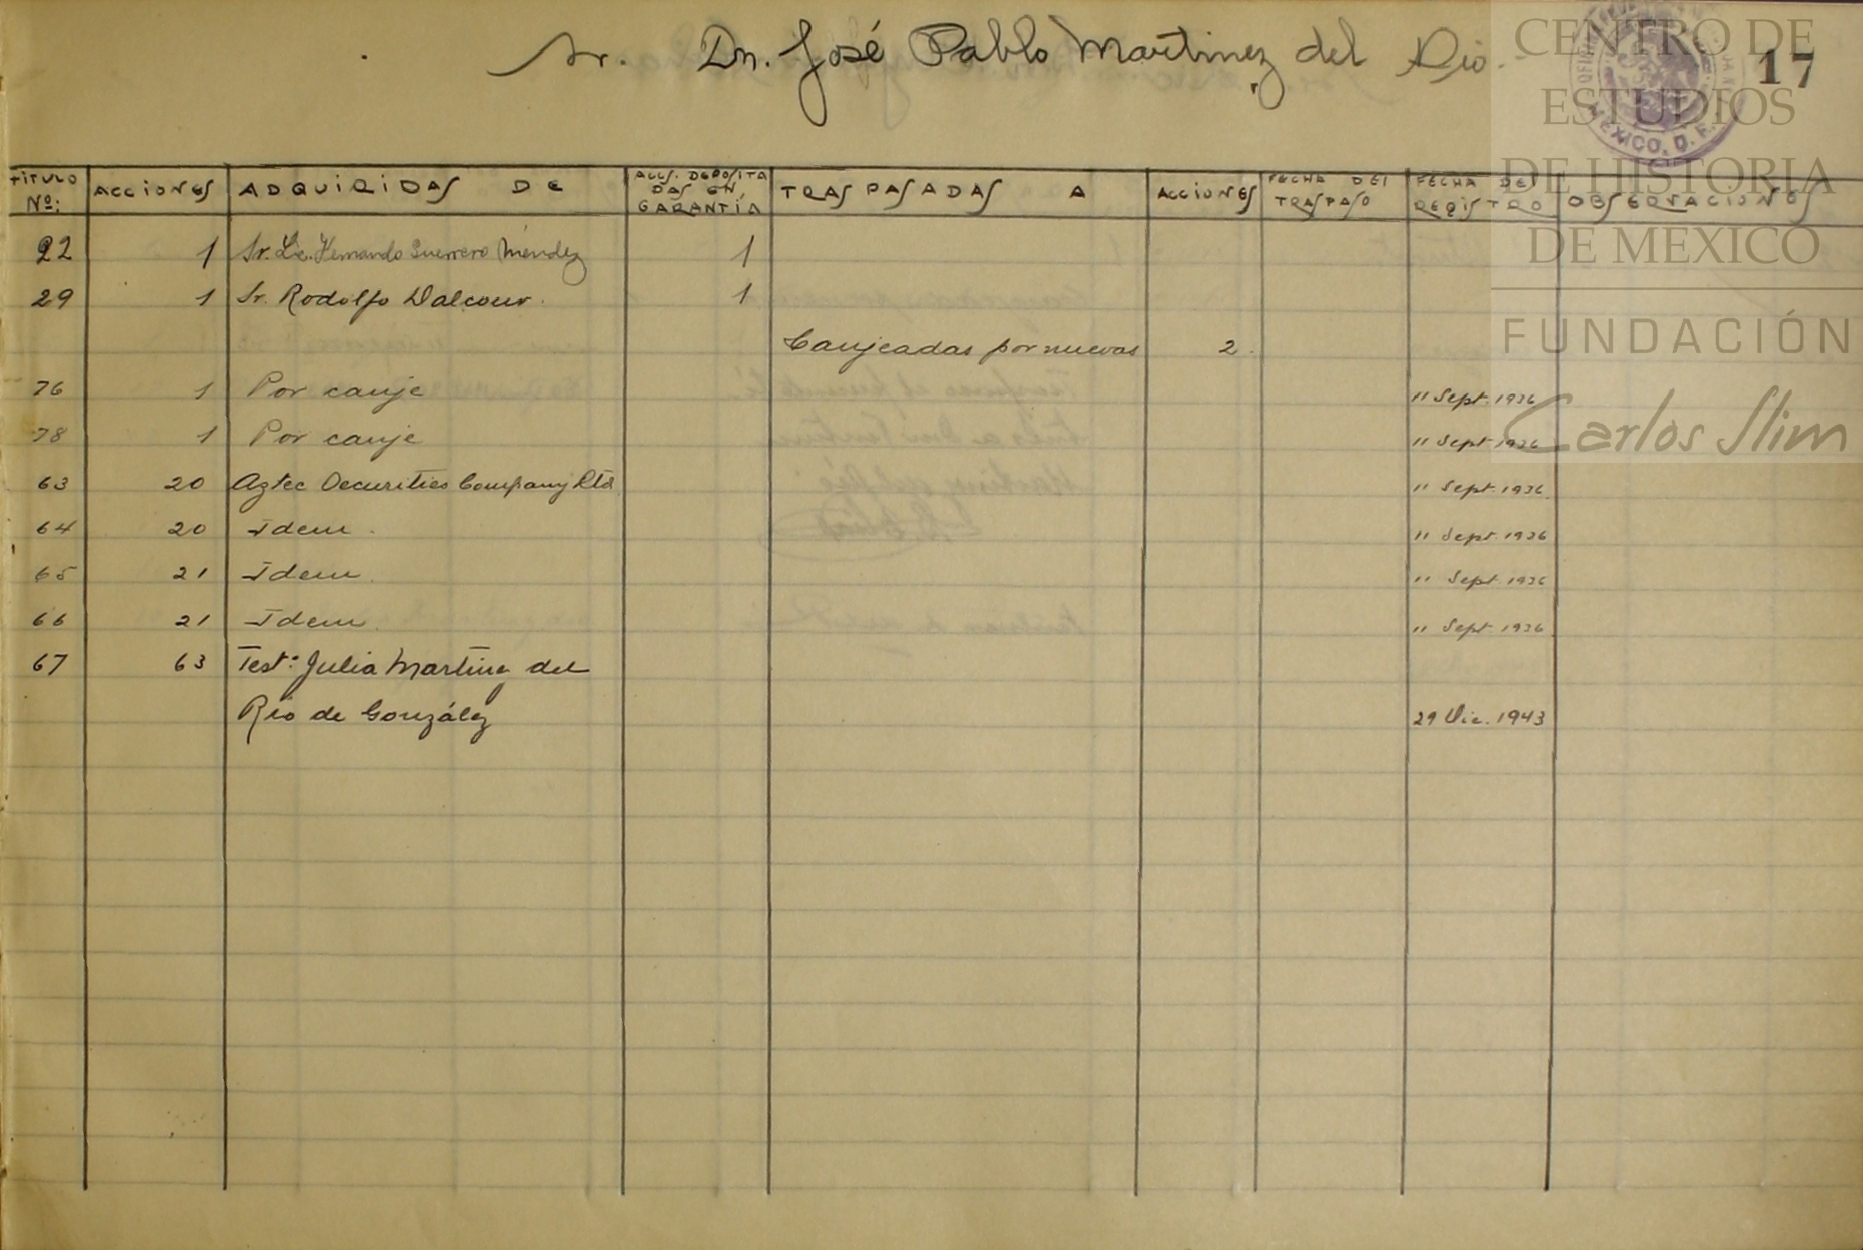 Sr. Dn. José Pablo Martinez del Rio.
17
MEXICO, D. F.
CENTRO DE
ESTUDIOS
DE HISTORIA
DE MEXICO
FUNDACIÓN
Carlos Slim
TITULO Nº: ACCIONES ADQUIRIDAS DE ACCS. DEPOSITADAS EN GARANTÍA TRASPASADAS A ACCIONES FECHA DEL TRASPASO FECHA DEL REGISTRO OBSERVACIONES
22 1 Sr. Lic. Fernando Guerrero Méndez 1
29 1 Sr. Rodolfo Dalcour. 1
Canjeadas por nuevas 2.
76 1 Por canje 11 Sept. 1936
78 1 Por canje 11 Sept. 1936
63 20 Aztec Securities Company Ltd 11 Sept. 1936
64 20 Idem. 11 Sept. 1936
65 21 Idem. 11 Sept. 1936
66 21 Idem. 11 Sept. 1936
67 63 Test: Julia Martinez del
Rio de González 29 Dic. 1943